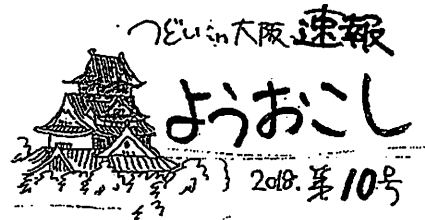 つどい in 大阪 速報
ようおこし
2018. 第10号